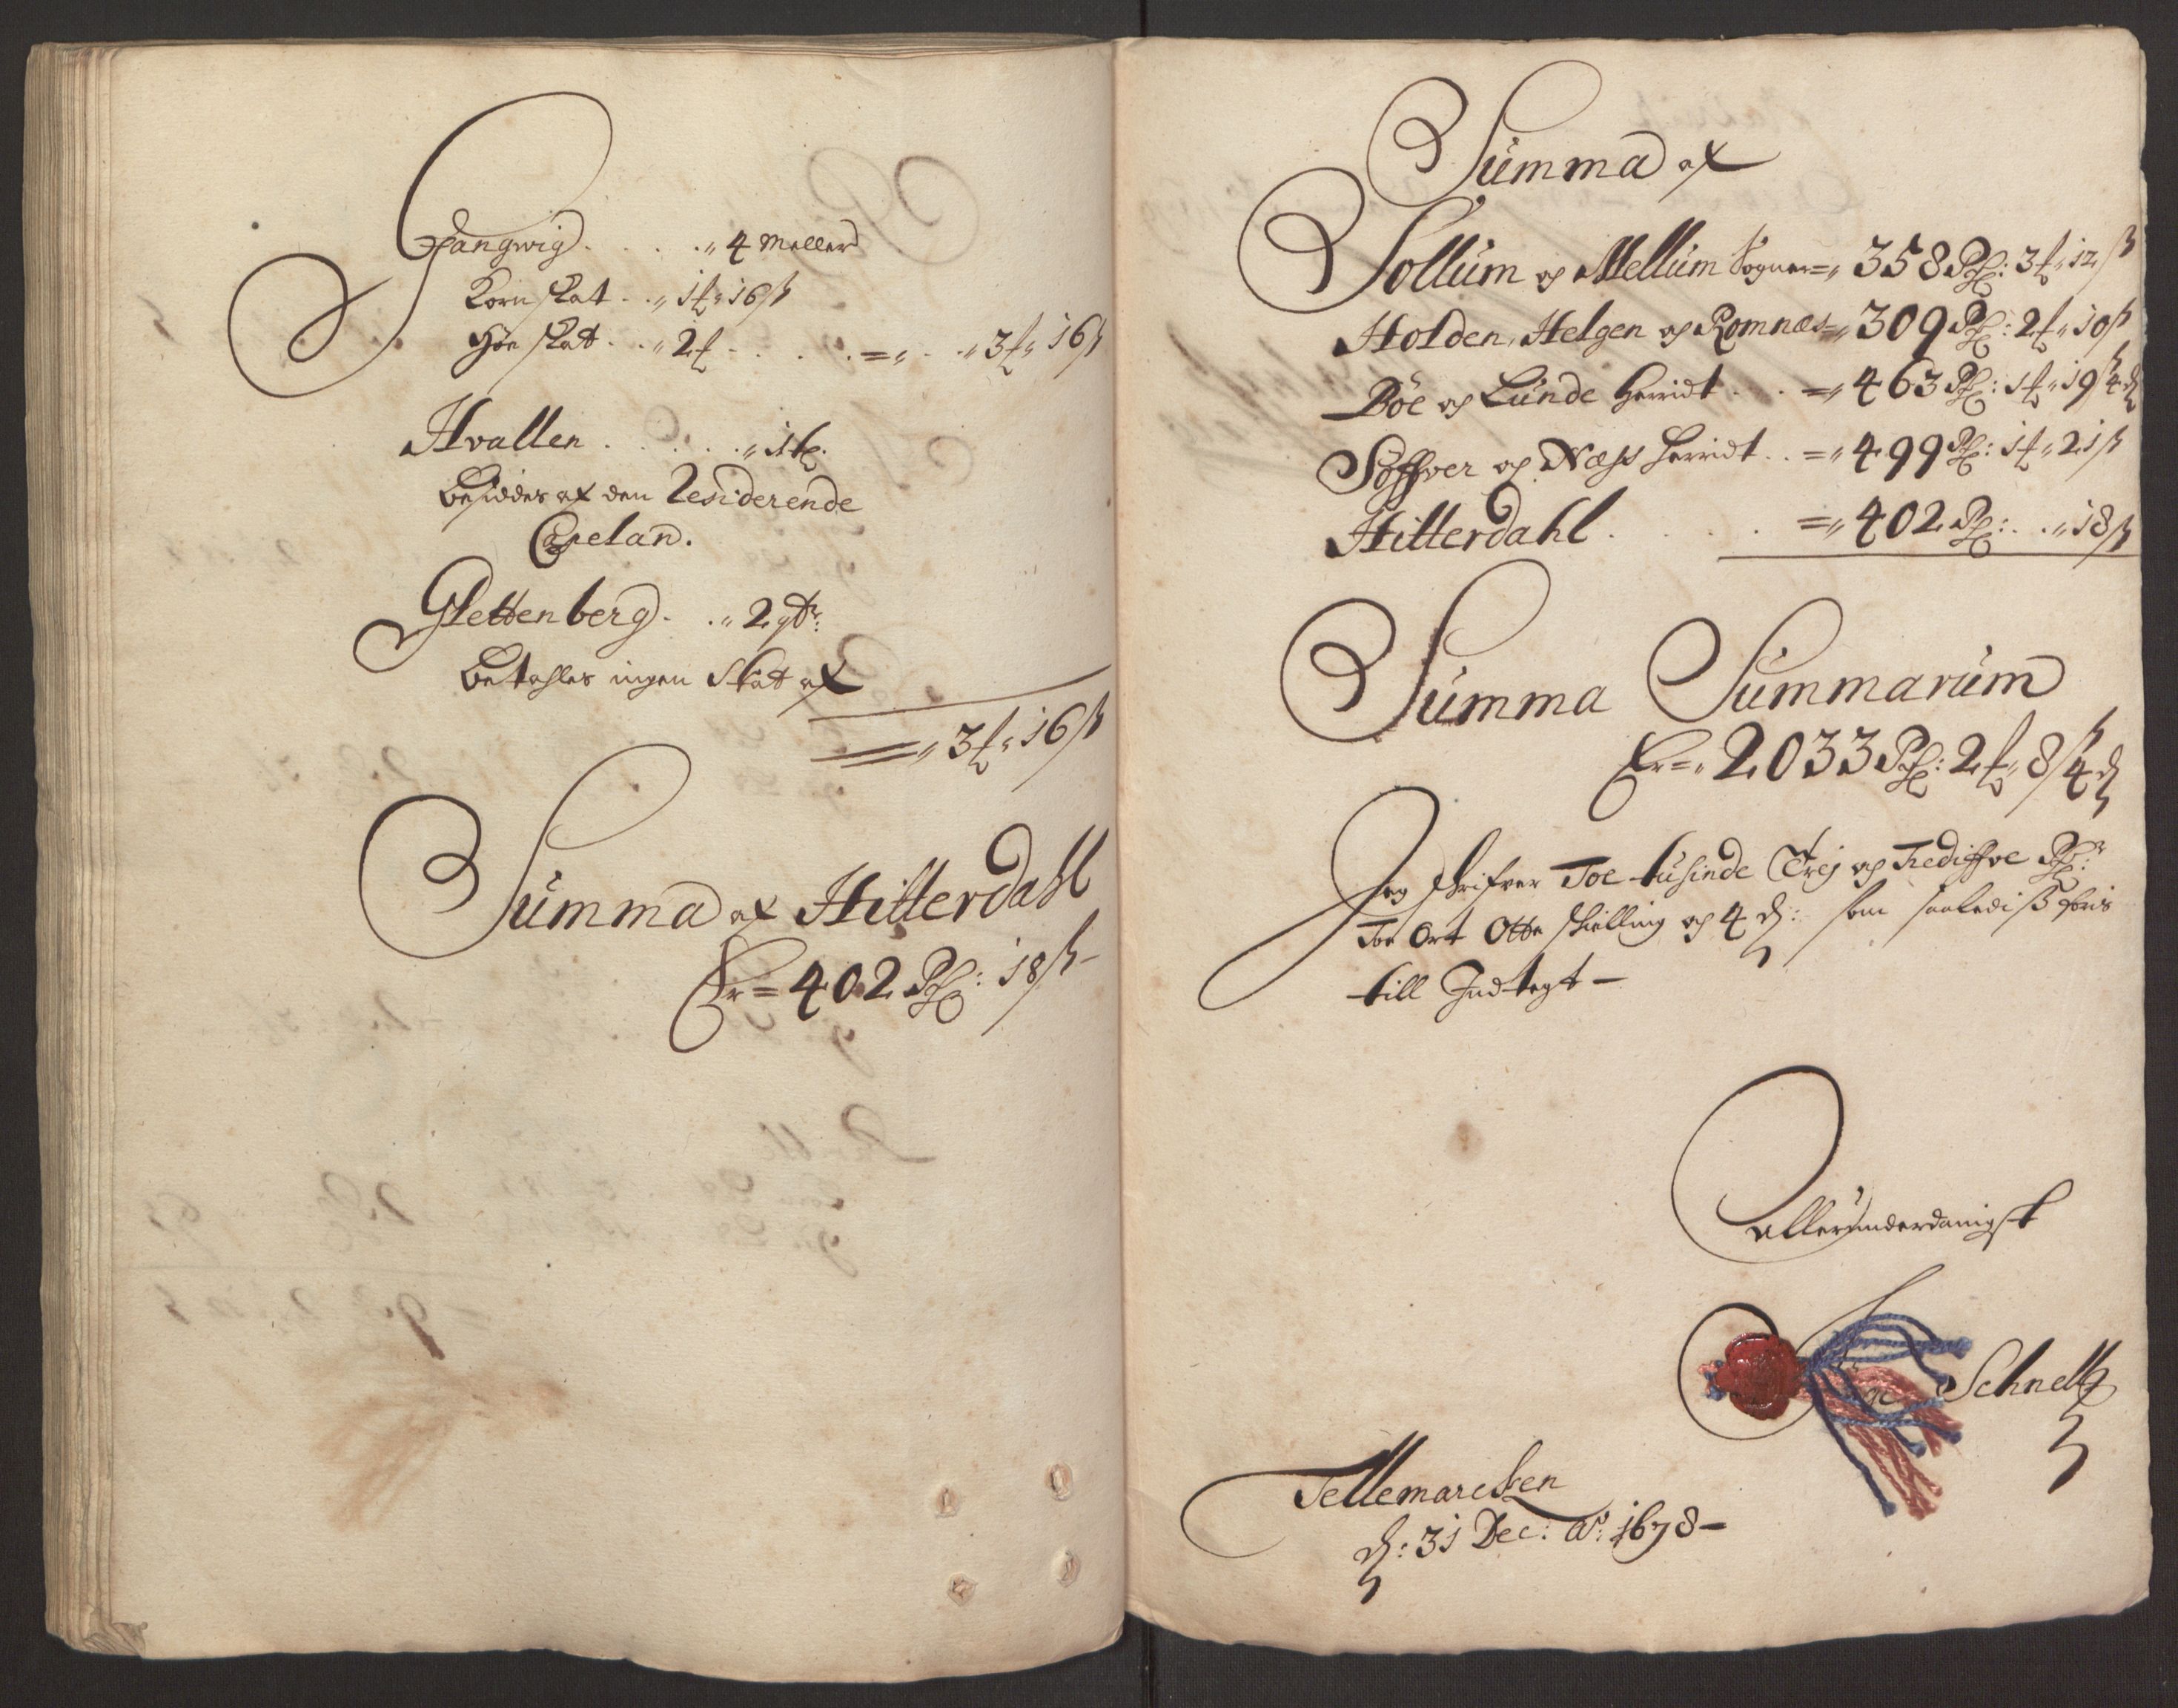 Fangwig . . . . „ 4 meller
Kornskat . . „ 1f „ 16ß
Høe skat . . „ 2f - . . . . = „ . . „ 3f „ 16ß
Hvallen . . . . . „ 1 tl.
besiddes af den Residerende
Capelan.
Glettenberg . . „ 2 qtr:
betahles ingen Skat af
= „ 3f „ 16ß
Summa af Hitterdahl
Er = 402 Rdl: 18ß -
Summa af
Sollum og Mellum Sogner = „ 358 Rdl: 3f „ 12ß
Holden, Helgen og Romnæs = „ 309 Rdl: 2f „ 10ß
Böe og Lunde Herridt . . = „ 463 Rdl: 1f „ 19ß 4 d
Söffver og Næss Herridt . . = „ 499 Rdl: 1f „ 21ß
Hitterdahl . . . . = „ 402 Rdl: . . „ 18ß
Summa Summarum
Er = „ 2033 Rdl: 2f „ 8ß 4 d
Jeg skrifver Toe tusinde Trej og Trediffve Rdr:
Toe Ort Otte skielling og 4 d: som saalediß föris
till Indtegt -
Allerunderdanigst
Schnell
Tellemarcken
d: 31 Dec: Ao: 1678 -